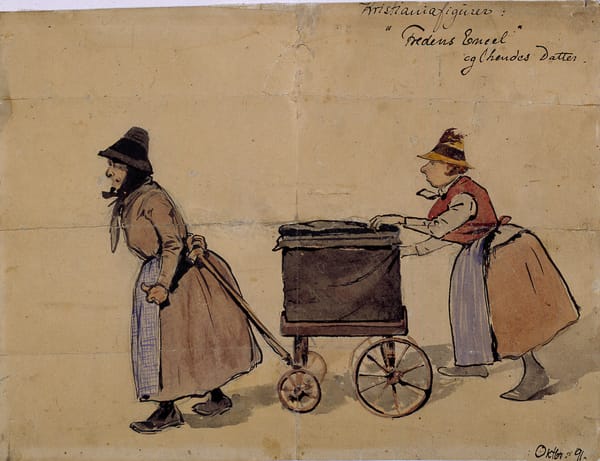 Kristianiafigurer:
"Fredens Engel"
og hendes Datter.
Oktbr 91.